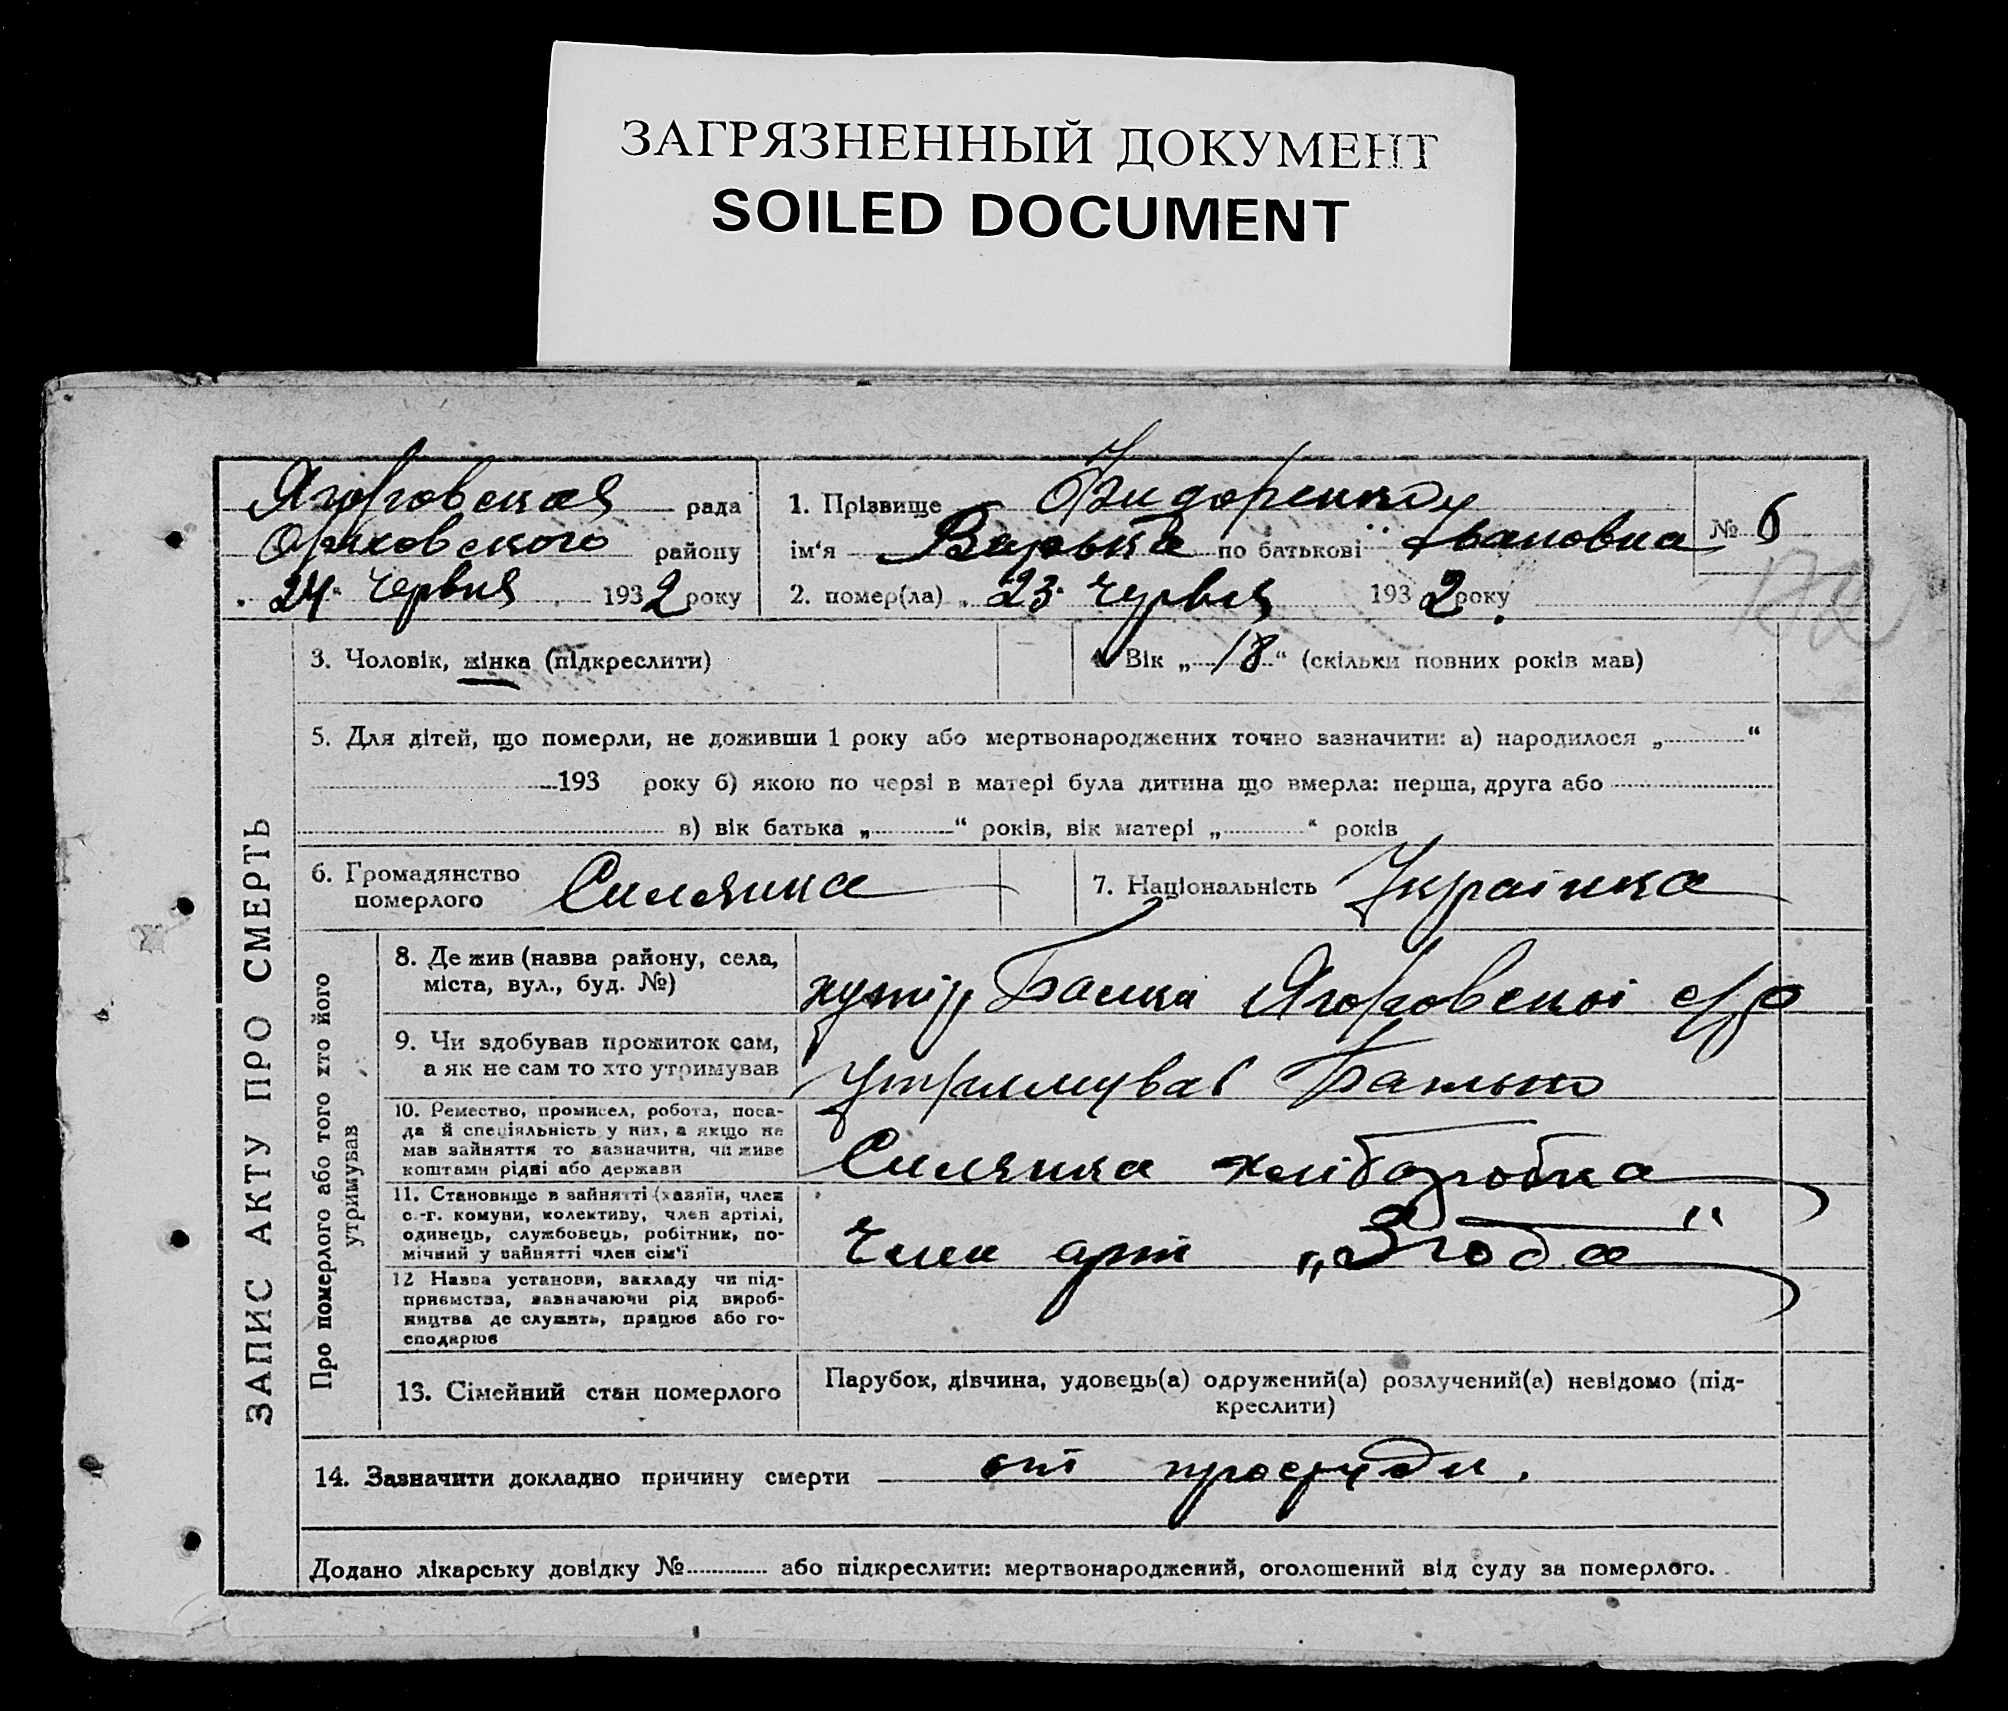 ЗАГРЯЗНЕННЫЙ ДОКУМЕНТ
SOILED DOCUMENT
Ягоровская рада
Оріховського району
„ 24 " червня 1932 року
1. Прізвище Фидоренко
ім'я Варька по батькові Івановна
№ 6
2. помер(ла) „ 23 " червня 1932 року
3. Чоловік, жінка (підкреслити)
4. Вік „ 18 “ (скільки повних років мав)
5. Для дітей, що померли, не доживши 1 року або мертвонароджених точно зазначити: а) народилося „ “
193 року б) якою по черзі в матері була дитина що вмерла: перша, друга або
в) вік батька „ “ років, вік матері „ “ років
6. Громадянство
померлого Силянка
7. Національність Українка
ЗАПИС АКТУ ПРО СМЕРТЬ
Про померлого або того хто його
утримував
8. Де жив (назва району, села,
міста, вул., буд. №)
хутір Балки Ягоровскоі с/р
9. Чи здобував прожиток сам,
а як не сам то хто утримував
Утримував Батько
10. Ремество, промисел, робота, поса-
да й спеціяльність у них, а якщо не
мав зайняття то зазначити, чи живе
коштами рідні або держави
Силянка хліборобка
11. Становище в зайнятті (хазяїн, член
с.-г. комуни, колективу, член артілі,
одинець, службовець, робітник, по-
мічний у зайнятті член сім'ї
Член арт „Згода"
12 Назва установи, закладу чи під-
приємства, зазначаючи рід вироб-
ництва де служить, працює або го-
сподарює
13. Сімейний стан померлого
Парубок, дівчина, удовець(а) одружений(а) розлучений(а) невідомо (під-
креслити)
14. Зазначити докладно причину смерти от простуди.
Додано лікарську довідку № або підкреслити: мертвонароджений, оголошений від суду за померлого.